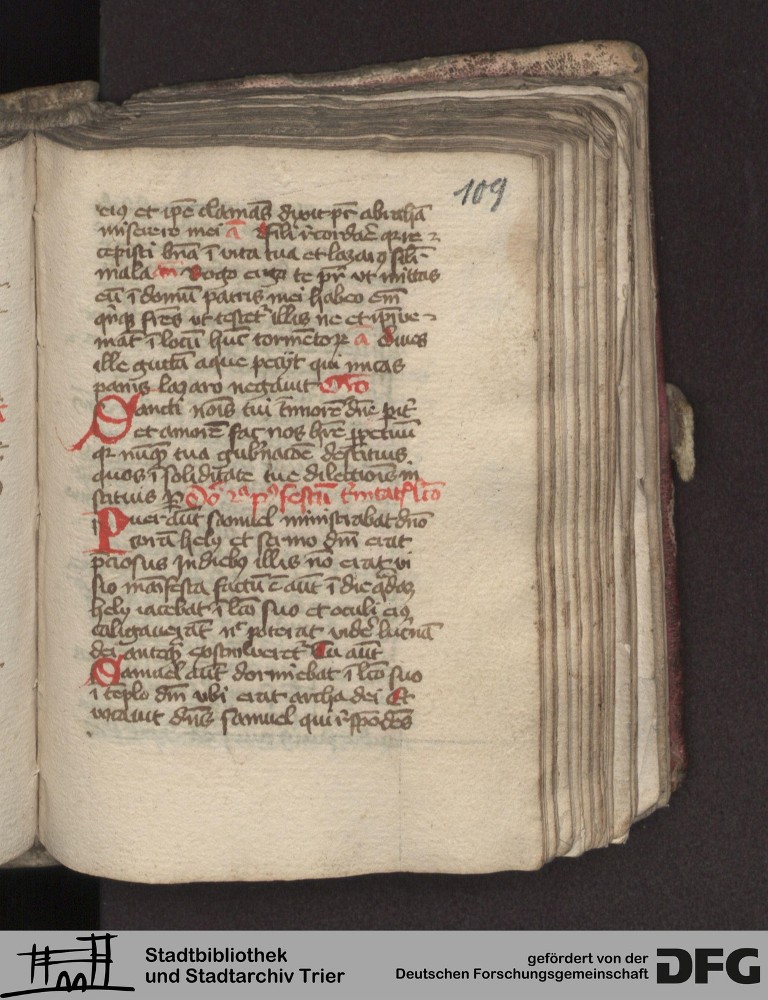 109
eiꝰ et ip̄e clamās dixit pr̄ abrahā
miserere mei a̅ fili r̄cordar̄ qꝛ re
cepisti bn̄a ī vita tua et lazarꝰ sil̄i
mala an̄ Rogo ergo te pr̄ vt mittas
eū ī domū patris mei habeo em̄
qn̄qꝫ fr̄es vt testet᷑ illis ne et ip̄i ve
niāt ī locū hūc tormētoꝝ a̅ Dives
ille guttā aque pecijt qui micas
panis lazaro negavit Oro̅
Sancti nōis tui timorē dn̄e pit᷑
et amorē fac nos hr̄e ꝑpetuū
qꝛ nūqꝫ tua gub̓nac̄oe destituis
quos ī soliditate tue dilectionis in
stituis ꝑ Do̅ 2a pꝰ festū t̓nitatꝭ lc̄o
Puer aūt samuel ministrabat dn̄o
corā hely et sermo dn̄i erat
p̄ciosus In diebꝰ illis nō erat vi
sio manifesta factū ē aūt ī die q̄daꝫ
hely iacebat ī lc̄o suo et oculi eiꝰ
caligaverāt nc̄ poterat vider̄ lucernā
dei anteqͣꝫ extingueret᷑ Tu aūt
Samuel aūt dormiebat ī lc̄o suo
ī tēplo dn̄i vbi erat archa dei Et
vocavit dn̄s samuel qui r̄spōdēs
Stadtbibliothek
und Stadtarchiv Trier
gefördert von der
Deutschen Forschungsgemeinschaft
DFG